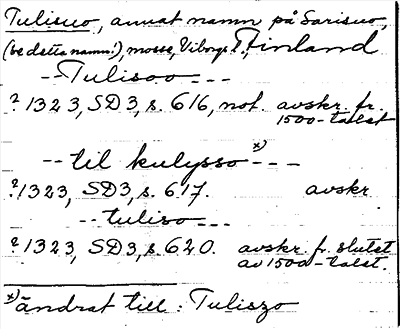 Tulisuo, annat namn på Sarisuo,
(se detta namn!), mosse, Viborgs l., Finland
-- Tulisoo ---
? 1323, SD3, s. 616, not. avskr. fr.
1500-talet
-- til kulysso x) ---
? 1323, SD3, s. 617. avskr
-- tuliso ---
? 1323, SD3, s. 620. avskr. fr. slutet
av 1500-talet.
x) ändrat till: Tuliszo